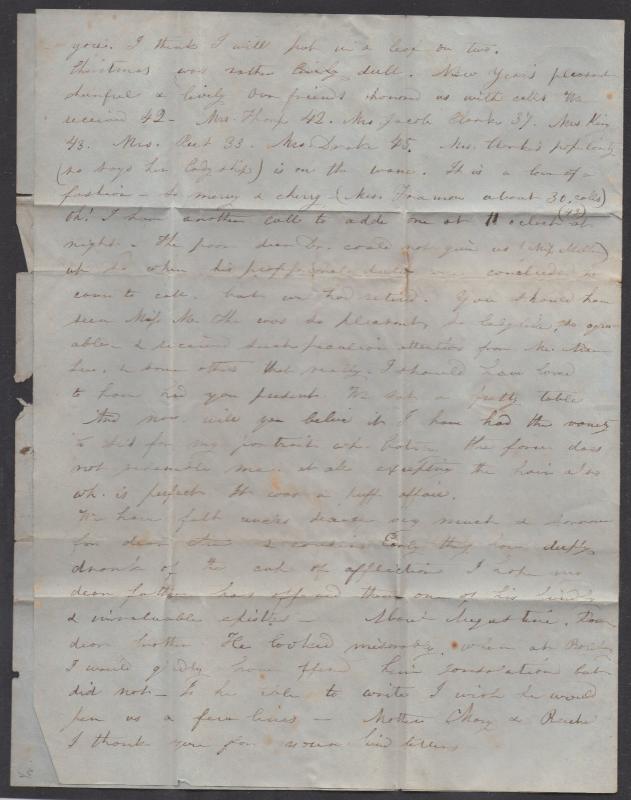 yours. I think I will put in a line or two.
Christmas was rather dull. New Year's pleasant
cheerful & lively Our friends honored us with calls We
received 42 - Mrs. Thorp 42. Mrs Jacob Clarke 37. Mrs King
43. Mrs. Peet 33. Mrs. Drake 45. Mrs. Clarke's popularity
(so says her ladyship) is on the wane. It is a
fashion - so merry & cheery - (Mrs. about 30. calls)
Oh! I have another call to add one at 11 o'clock at (43)
night. The poor dear Dr. could not give us (Miss )
up so when his professional duties were concluded he
came to call. but we had retired. You should have
seen Miss Mc She was so pleasant, so ladylike, so agree
able & received such peculiar attention from Mr.
& some others that really I should have loved
to have had you present We set a pretty table
And now will you believe it I have had the vanity
to sit for my portrait wh. the form does
not resemble me at all excepting the hair
wh. is perfect It was a affair.
We have felt very much & sorrow
for dear & cousin they have deeply
drank of the cup of affliction I hope my
dear father has offered them one of his kindly
& invaluable epistles - About Augustine. Poor
dear brother He looked miserably when at
I would gladly have offered him consolation but
did not - Is he able to write I wish he would
pen us a few lines - Mother Mary &
I thank you for your kind letters